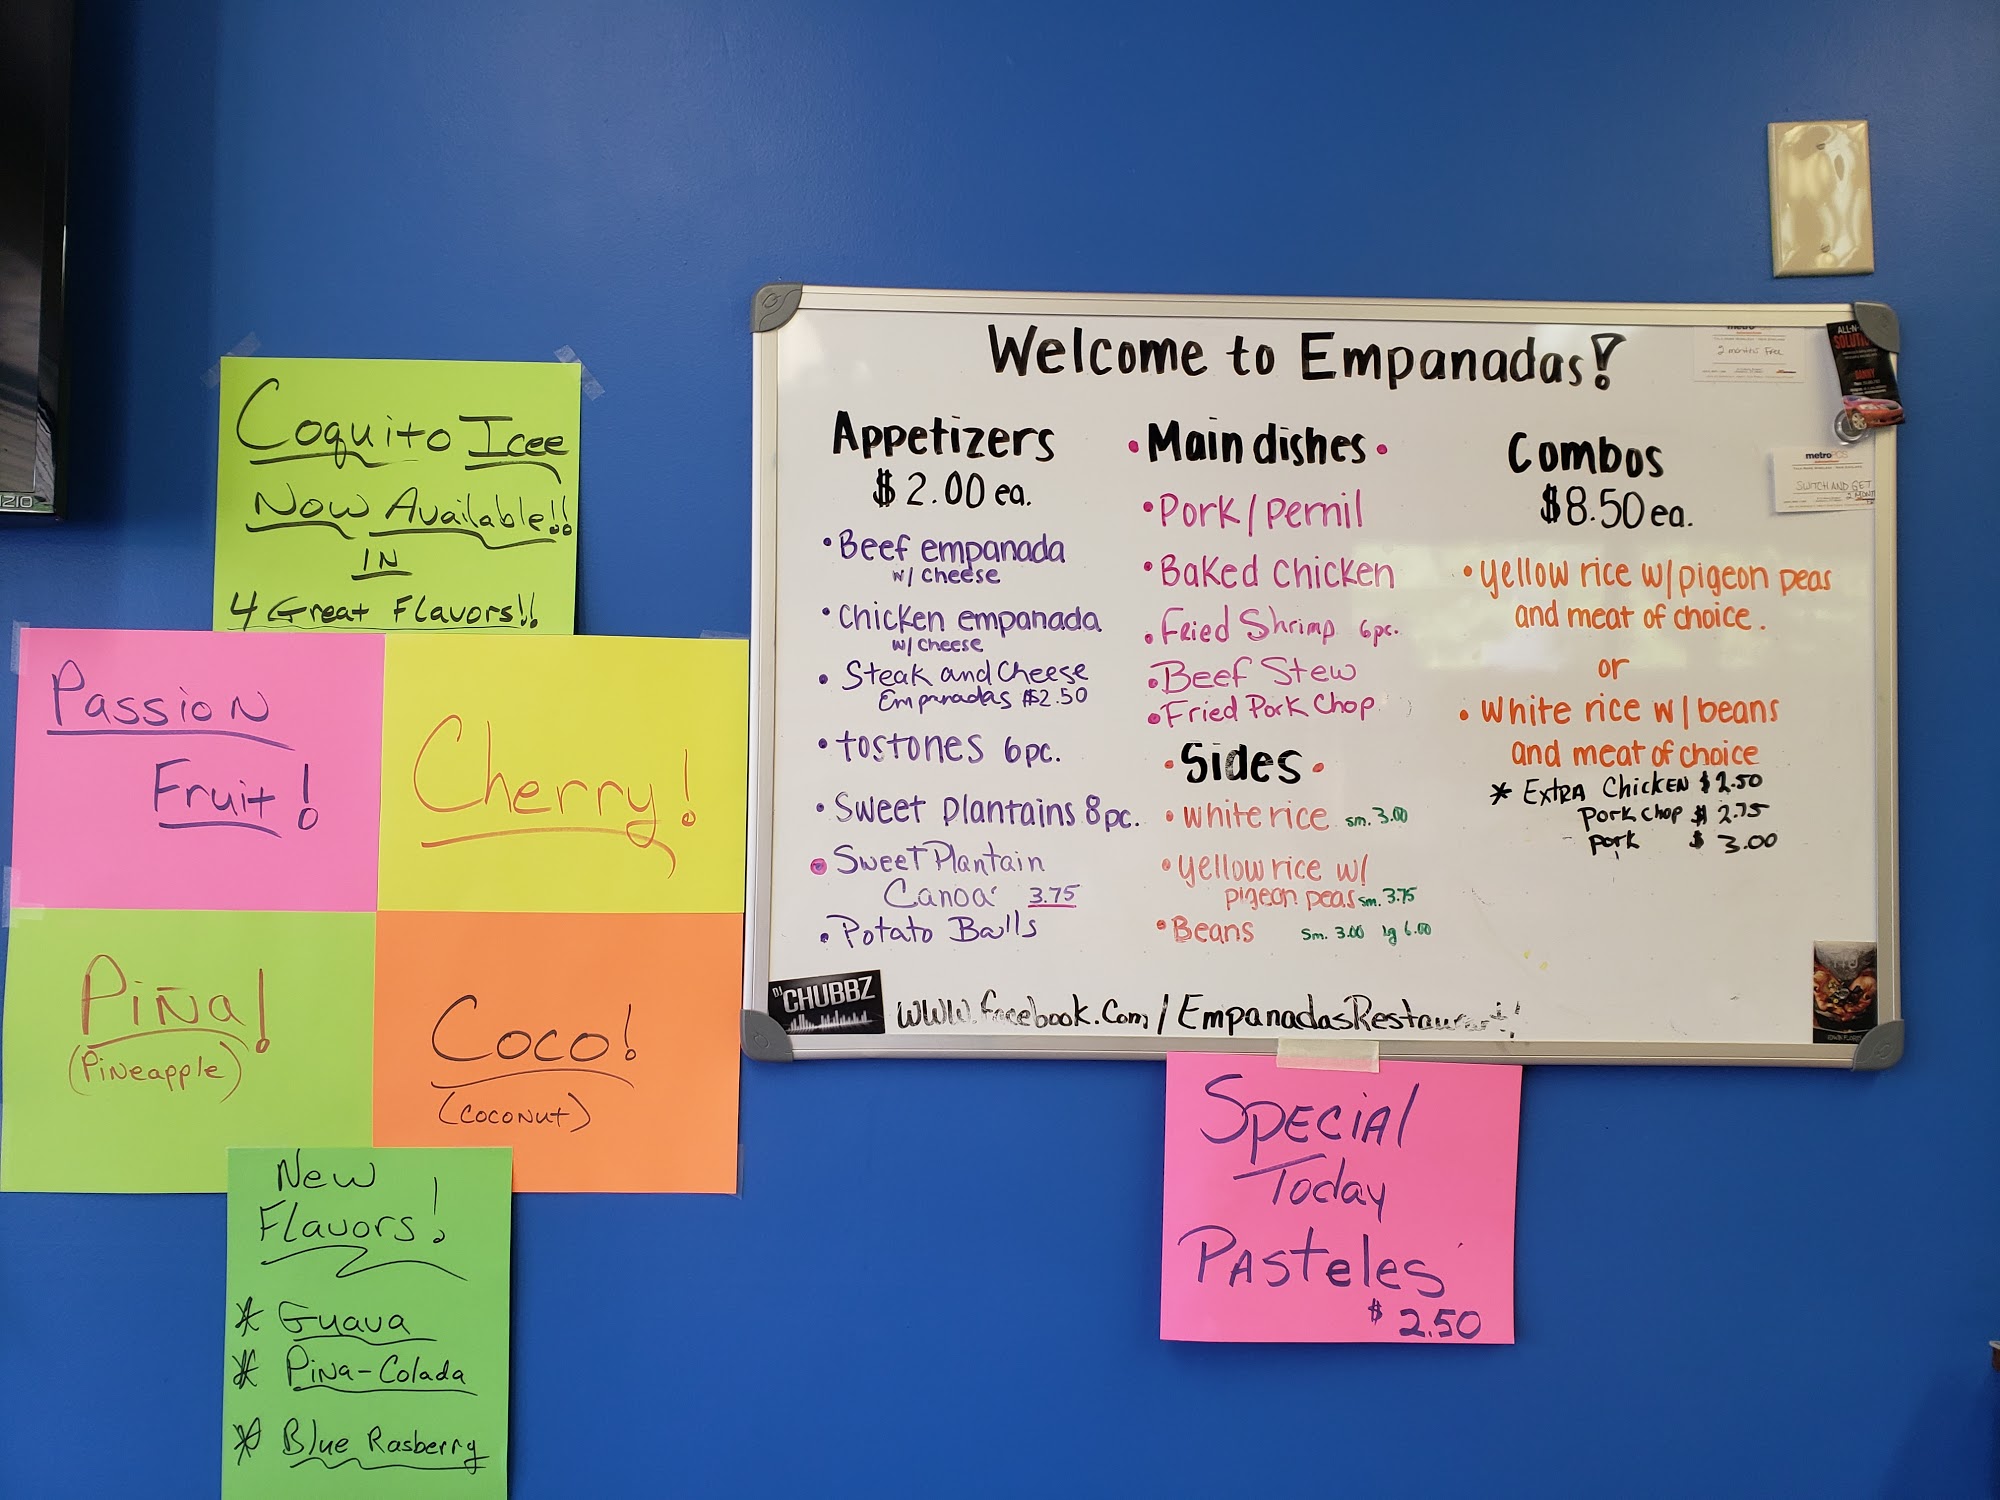 Coquito Icee
Now Available!!
IN
4 Great Flavors!!
Passion
Fruit!
Cherry!
Piña!
(Pineapple)
Coco!
(Coconut)
New
Flavors!
* Guava
* Pina-Colada
* Blue Rasberry
Welcome to Empanadas!
Appetizers
$2.00 ea.
• Beef empanada
w/ cheese
• Chicken empanada
w/ cheese
• Steak and Cheese
Empanadas $2.50
• tostones 6pc.
• Sweet plantains 8pc.
• Sweet Plantain
Canoa 3.75
• Potato Balls
• Main dishes •
• Pork/pernil
• Baked chicken
• Fried Shrimp 6pc.
• Beef Stew
• Fried Pork Chop
• Sides •
• white rice sm. 3.00
• yellow rice w/
pigeon peas sm. 3.75
• Beans sm. 3.00 lg 6.00
Combos
$8.50 ea.
• yellow rice w/pigeon peas
and meat of choice.
or
• white rice w/beans
and meat of choice
* Extra Chicken $2.50
Pork chop $2.75
Pork $3.00
DJ CHUBBZ
www.facebook.com/EmpanadasRestaurant
2 months Free
ALL-N-
SOLUTI
DANNY
metroPCS
SWITCH AND GET
2 MONT
IZIO
Special
Today
Pasteles
$2.50